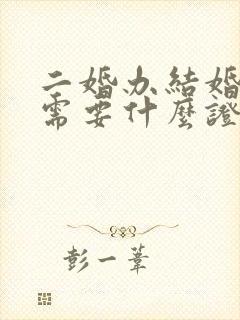 二婚办結婚
需要什麼證
彭一葦